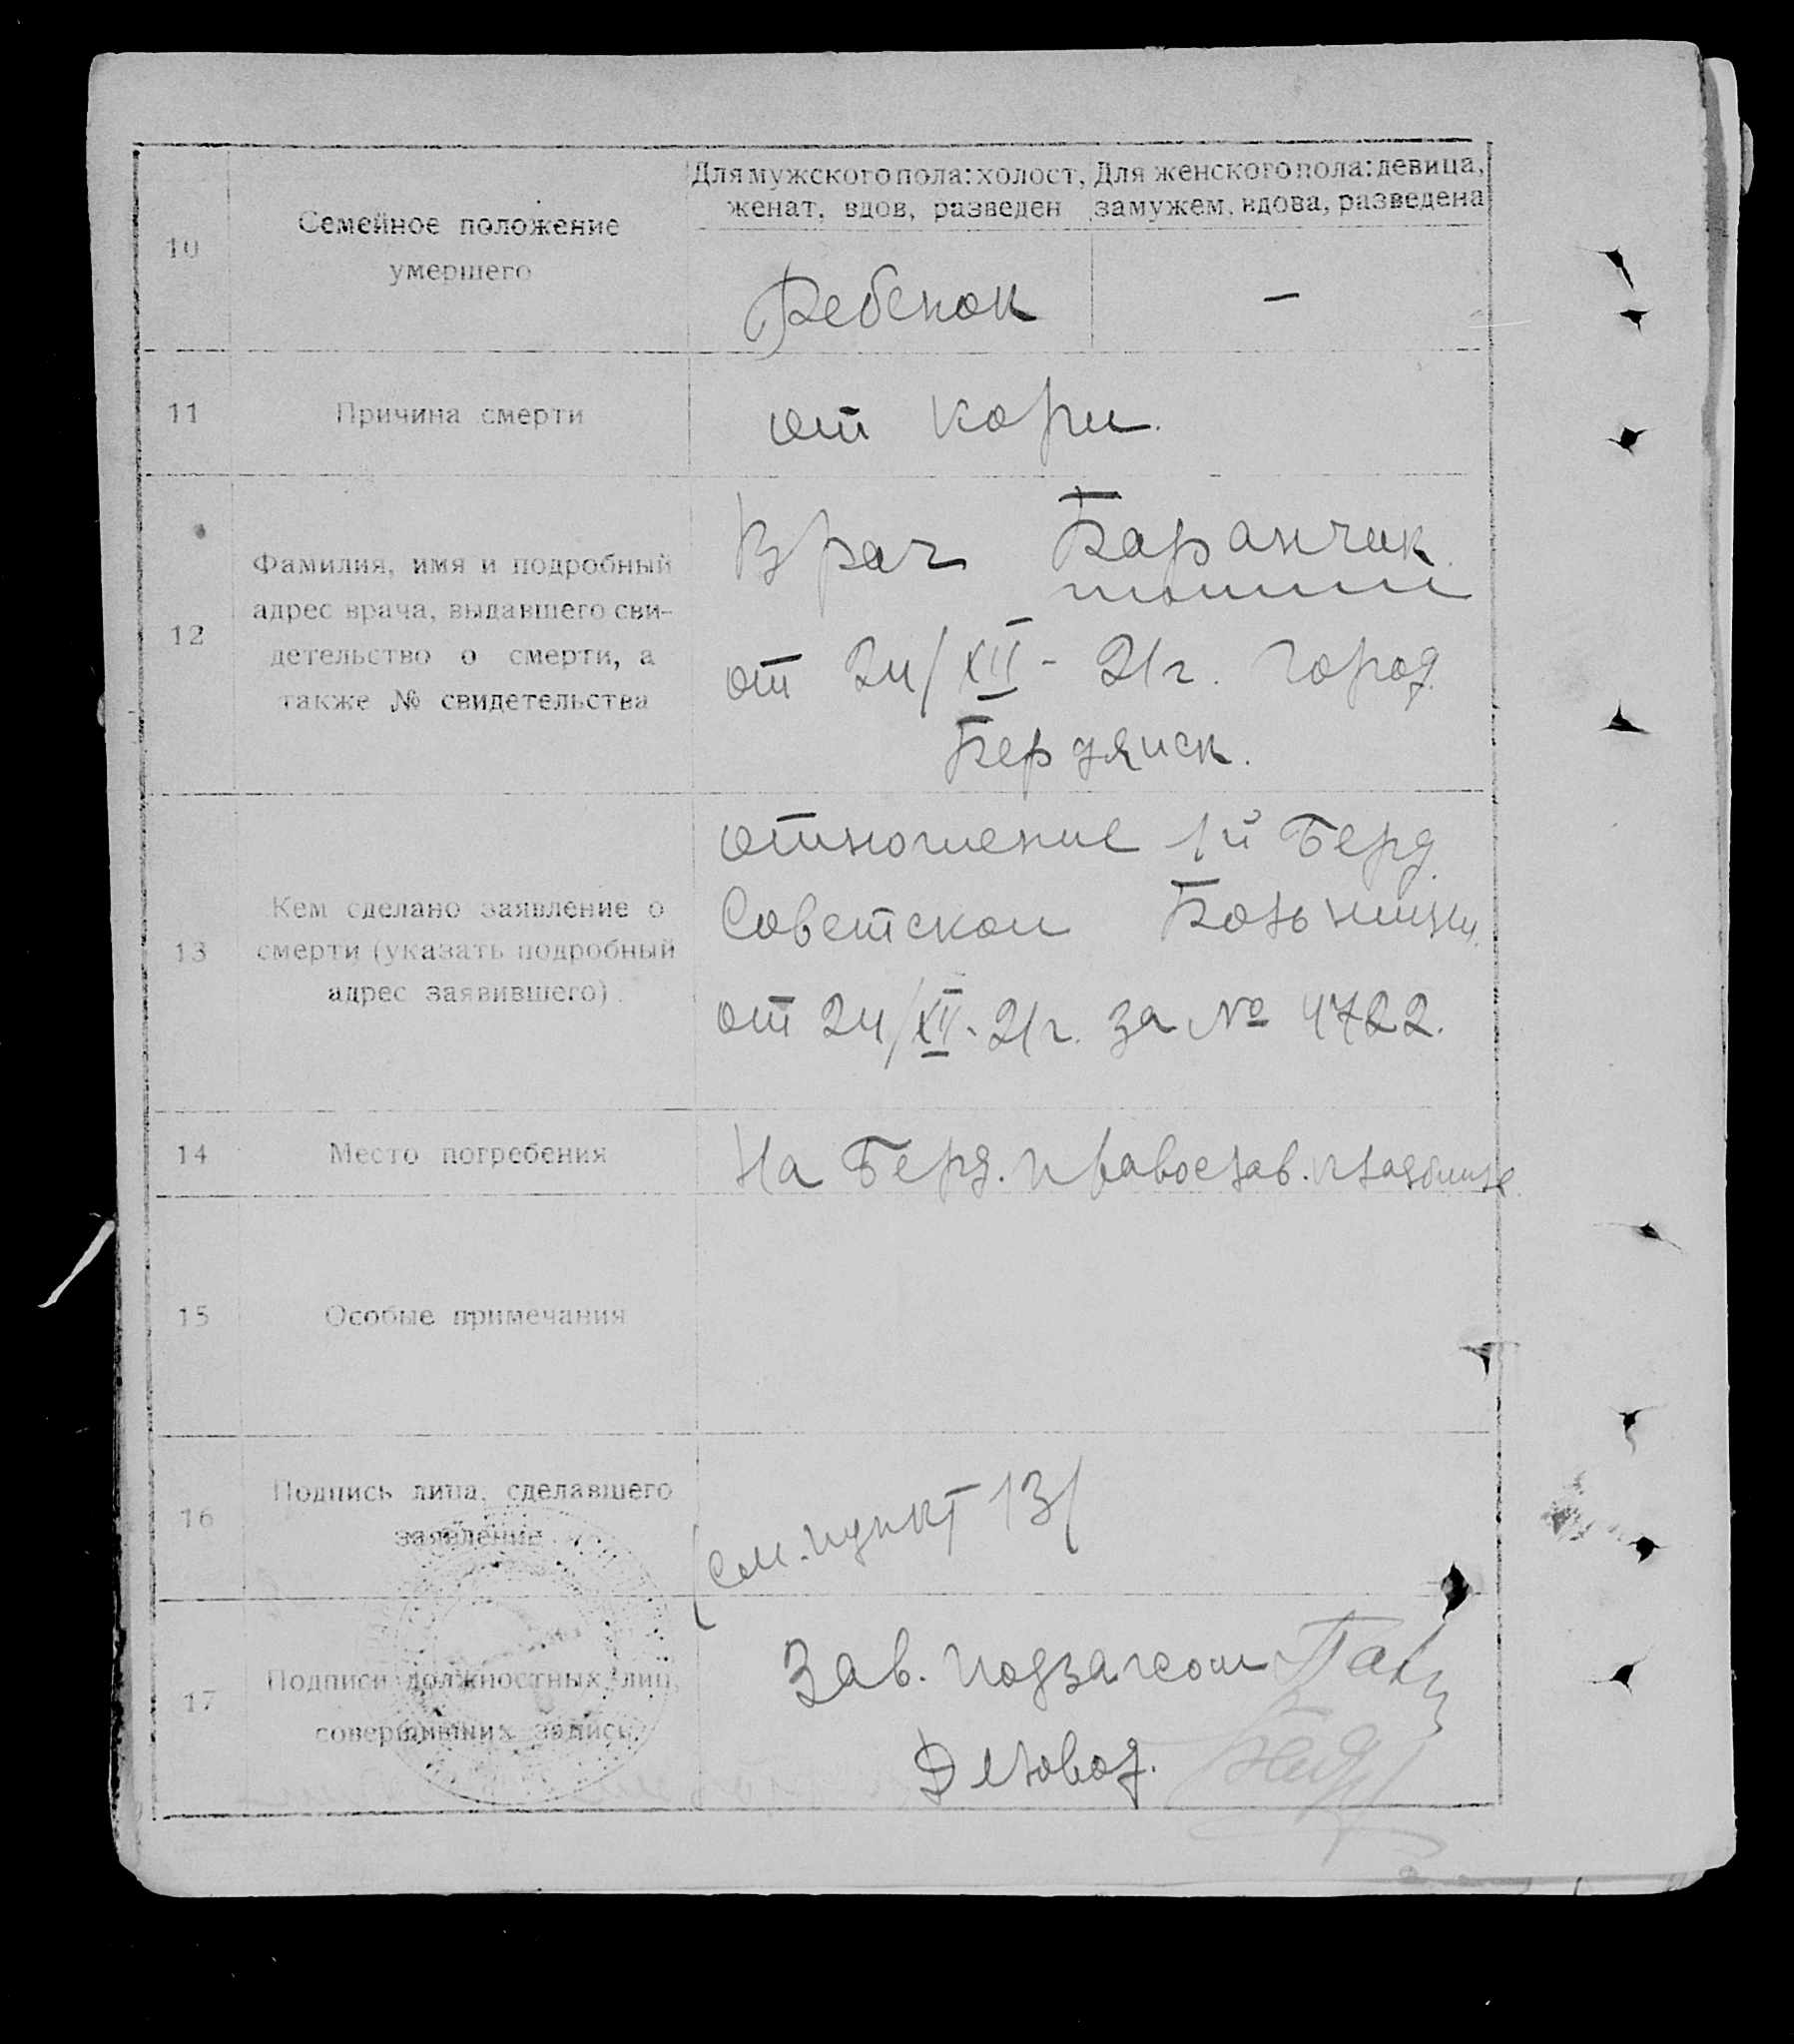 10
Семейное положение
умершего
Для мужского пола: холост,
женат, вдов, разведен
Для женского пола: девица,
замужем, вдова, разведена
Ребенок
—
11
Причина смерти
от кори.
12
Фамилия, имя и подробный
адрес врача, выдавшего сви-
детельство о смерти, а
также № свидетельства
Врач Баранчик
от 24/XII - 21г. город
Бердянск.
13
Кем сделано заявление о
смерти (указать подробный
адрес заявившего)
отношение 1й Берд.
Советской Больницы
от 24/XII - 21г. за № 4722.
14
Место погребения
На Берд. православ. кладбище.
15
Особые примечания
16
Подпись лица, сделавшего
заявление
(см. пункт 13)
17
Подписи должностных лиц,
совершивших запись.
Зав. подзагсом
Деловод.